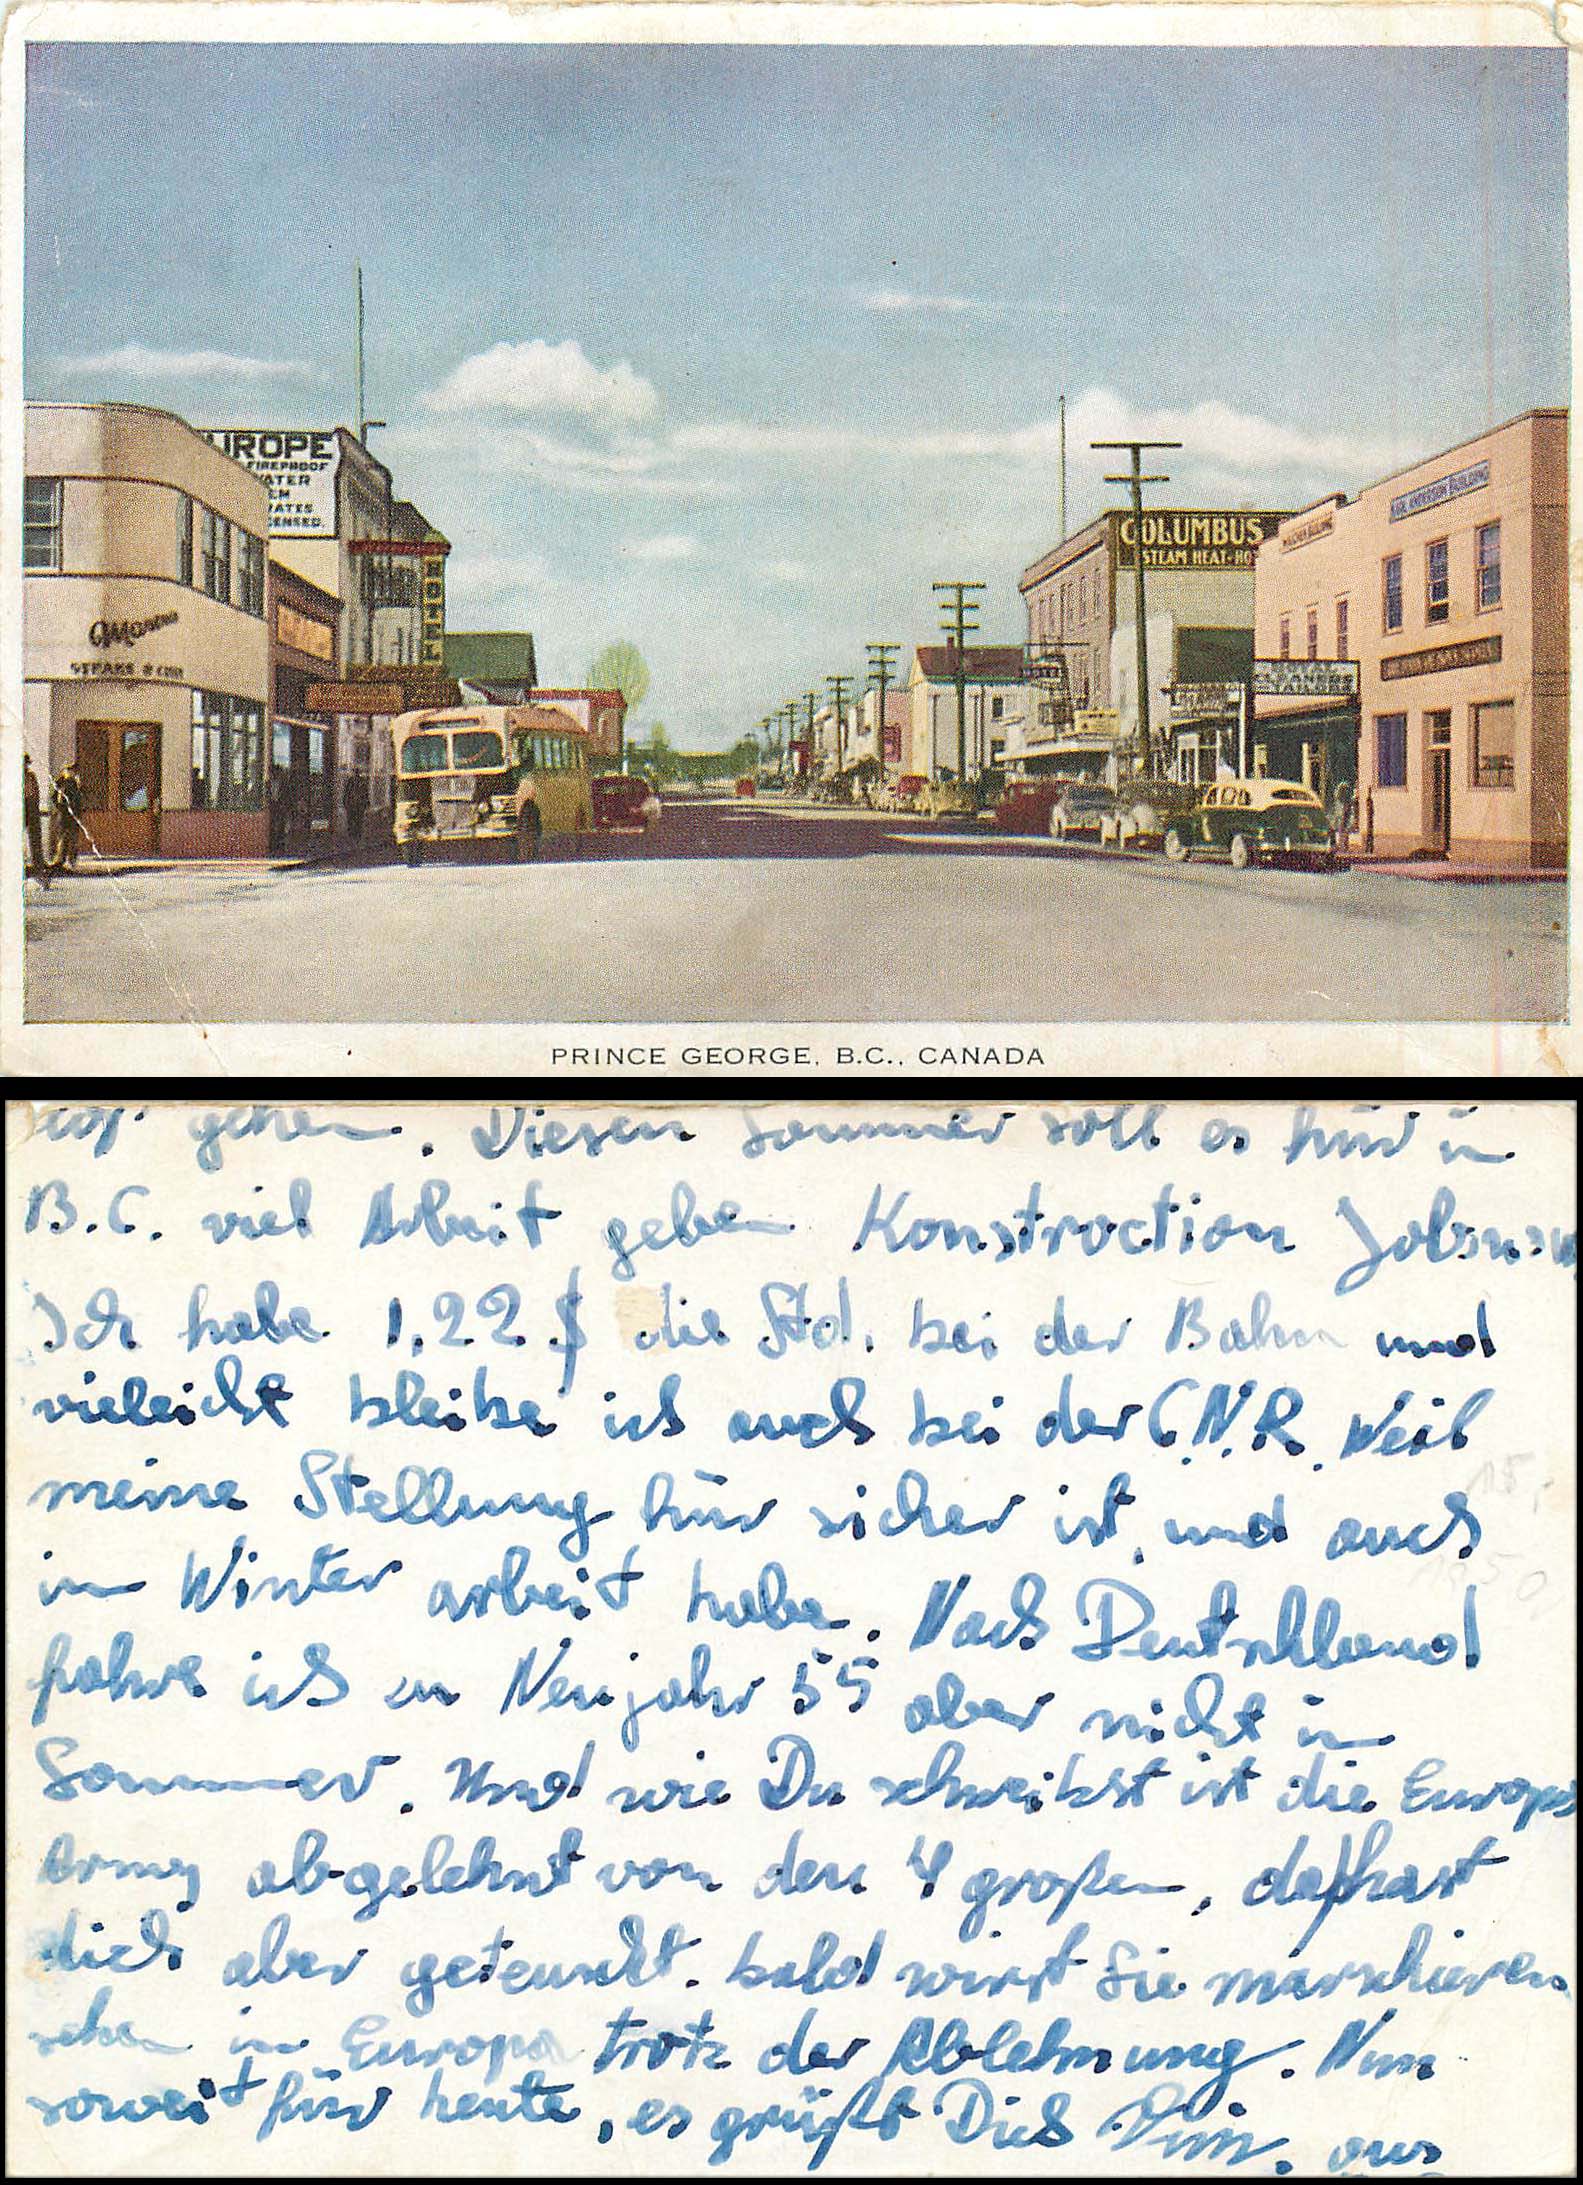 UROPE
FIREPROOF
ATER
EM
RATES
CENSED.
HOTEL
STEAKS &
COLUMBUS
STEAM HEAT-RO
BUILDING
ANDERSON BUILDING
CLEANERS
TAILORS
PRINCE GEORGE, B.C., CANADA
gehen. Diesen Sommer soll es hür in
B.C. viel Arbeit geben Konstruction
Ich habe 1.22 $ die Std. bei der Bahn und
vieleicht bleibe ich auch bei der C.N.R. Weil
meine Stellung hür sicher ist, und auch
im Winter arbeit habe. Nach Deutschland
fahre ich zu Neujahr 55 aber nicht im
Sommer. Und wie Du schreibst ist die Europa
Army abgelehnt von den 4 großen, da hast
dich aber geteuscht. bald wirst Sie marschieren
sehen in Europa trotz der Ablehnung. Nun
soweit für heute, es grüßt Dich aus
15,-